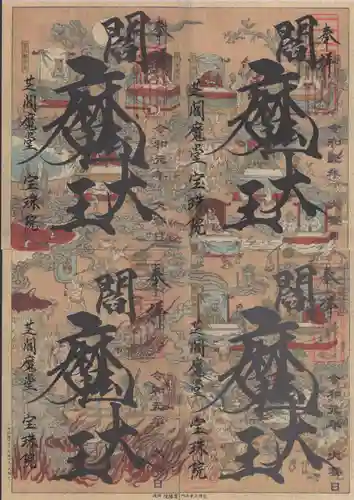 奉拝
閻魔大王
令和
芝閻魔堂 宝珠院
奉拝
閻魔大王
令和元年 大祭日
芝閻魔堂 宝珠院
奉拝
閻魔大王
令和元年 大祭日
芝閻魔堂 宝珠院
奉拝
閻魔大王
令和 年 大祭日
芝閻魔堂 宝珠院